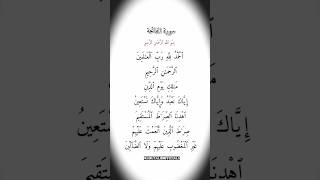 سورة الفاتحة
بِسْمِ اللَّهِ الرَّحْمَنِ الرَّحِيمِ
الْحَمْدُ لِلَّهِ رَبِّ الْعَالَمِينَ
الرَّحْمَنِ الرَّحِيمِ
مَالِكِ يَوْمِ الدِّينِ
إِيَّاكَ نَعْبُدُ وَإِيَّاكَ نَسْتَعِينُ
اهْدِنَا الصِّرَاطَ الْمُسْتَقِيمَ
صِرَاطَ الَّذِينَ أَنْعَمْتَ عَلَيْهِمْ
غَيْرِ الْمَغْضُوبِ عَلَيْهِمْ وَلَا الضَّالِّينَ